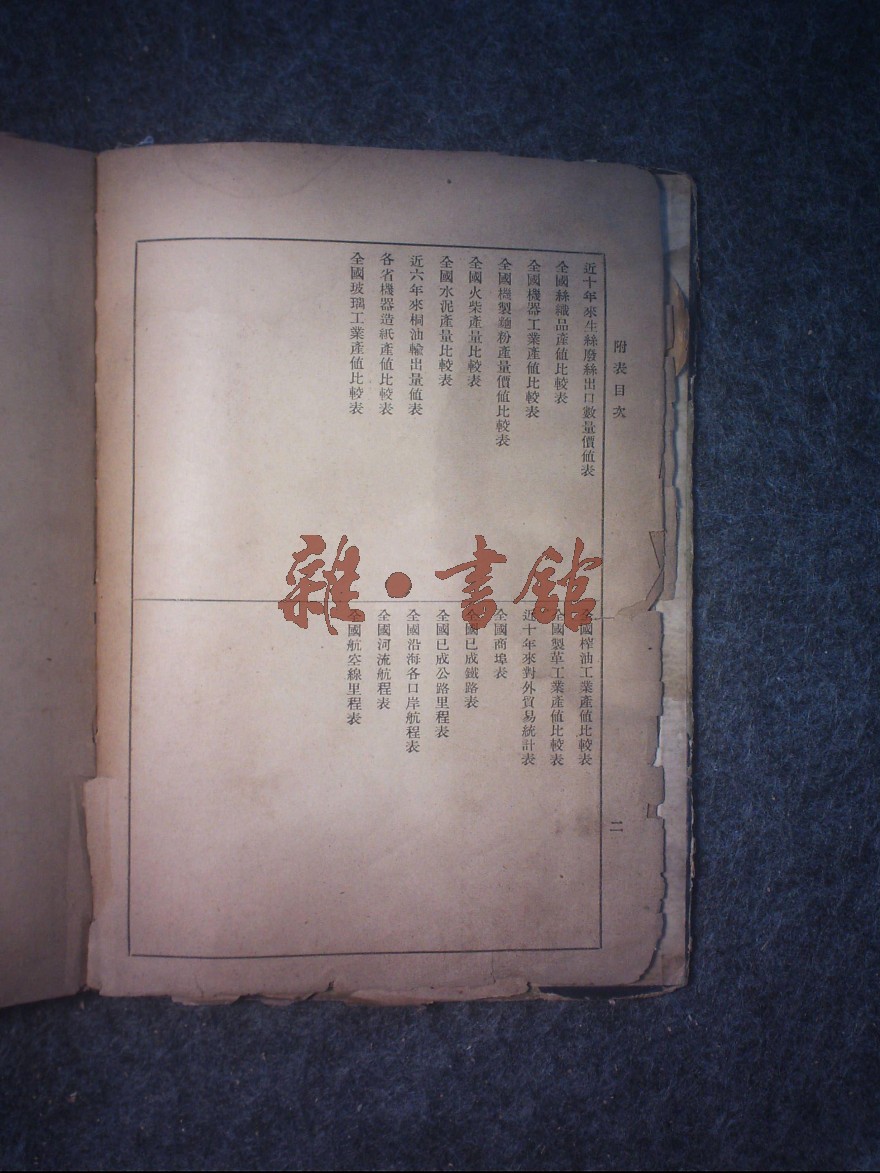 附表目次
近十年來生絲廢絲出口數量價值表
全國絲織品產值比較表
全國機器工業產值比較表
全國機製麵粉產量價值比較表
全國火柴產量比較表
全國水泥產量比較表
近六年來桐油輸出量值表
各省機器造紙產值比較表
全國玻璃工業產值比較表
全國榨油工業產值比較表
全國製革工業產值比較表
近十年來對外貿易統計表
全國商埠表
全國已成鐵路表
全國已成公路里程表
全國沿海各口岸航程表
全國河流航程表
全國航空線里程表
二
雜·書館